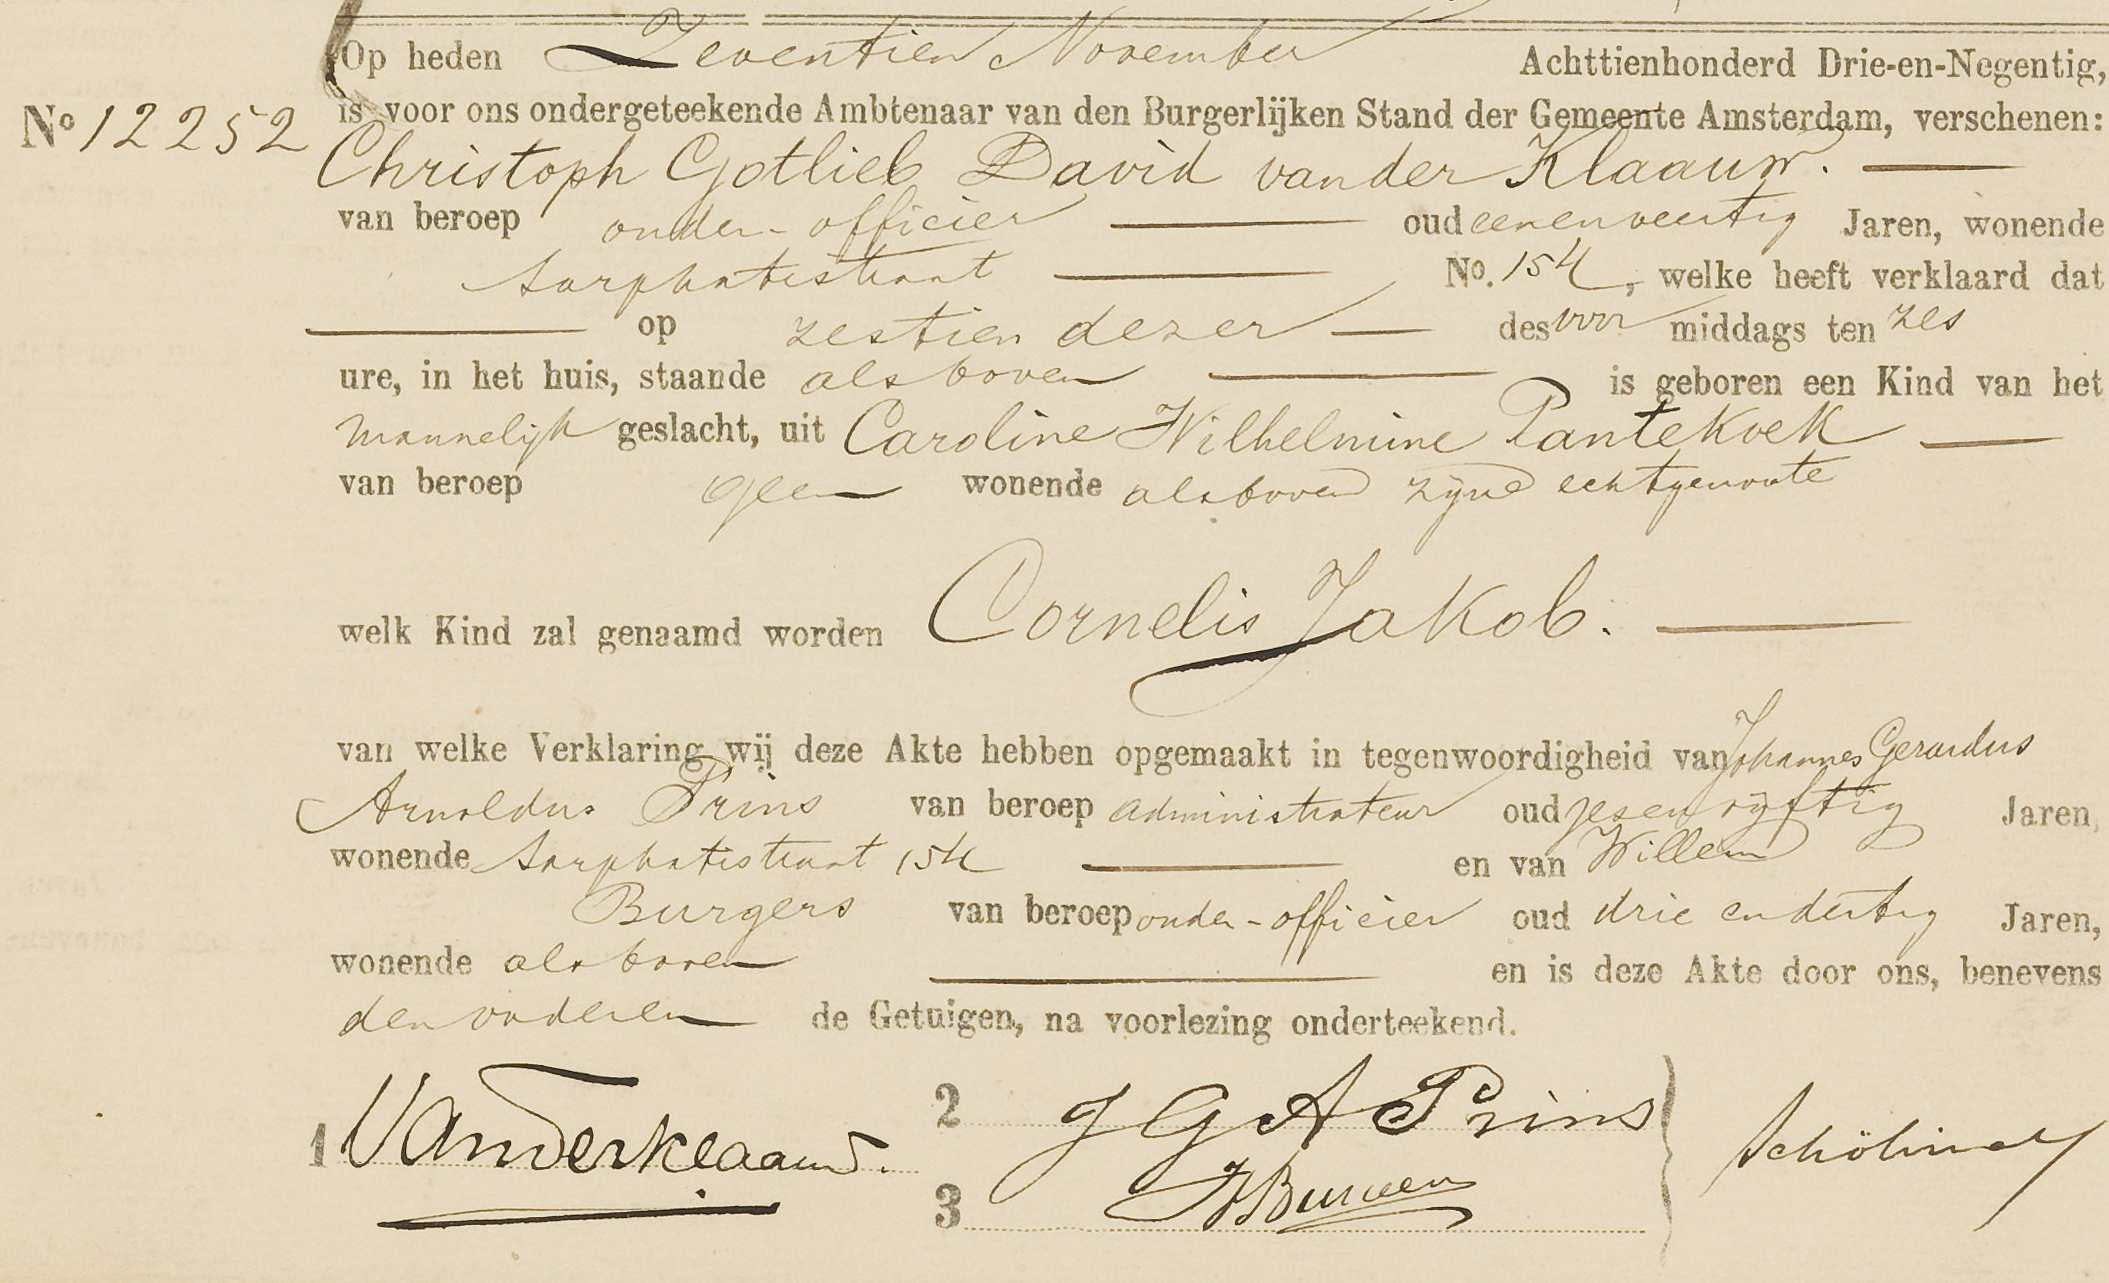 Op heden Zeventien November Achttienhonderd Drie-en-Negentig,
No 12252 is voor ons ondergeteekende Ambtenaar van den Burgerlijken Stand der Gemeente Amsterdam, verschenen:
Christoph Gotlieb David van der Klaauw.
van beroep onder-officier oud eenenveertig Jaren, wonende
Sarphatistraat No. 154, welke heeft verklaard dat
op zestien dezer des voor middags ten zes
ure, in het huis, staande als boven is geboren een Kind van het
mannelijk geslacht, uit Caroline Wilhelmine Pantekoek
van beroep geen wonende als boven zijne echtgenoote
welk Kind zal genaamd worden Cornelis Jakob.
van welke Verklaring wij deze Akte hebben opgemaakt in tegenwoordigheid van Johannes Gerardus
Arnoldus Prins van beroep administrateur oud zesenvijftig Jaren,
wonende Sarphatistraat 154 en van Willem
Burgers van beroep onder-officier oud drie en dertig Jaren,
wonende als boven en is deze Akte door ons, benevens
den vader en de Getuigen, na voorlezing onderteekend.
1 VanderKlaauw.
2 J G A Prins
3